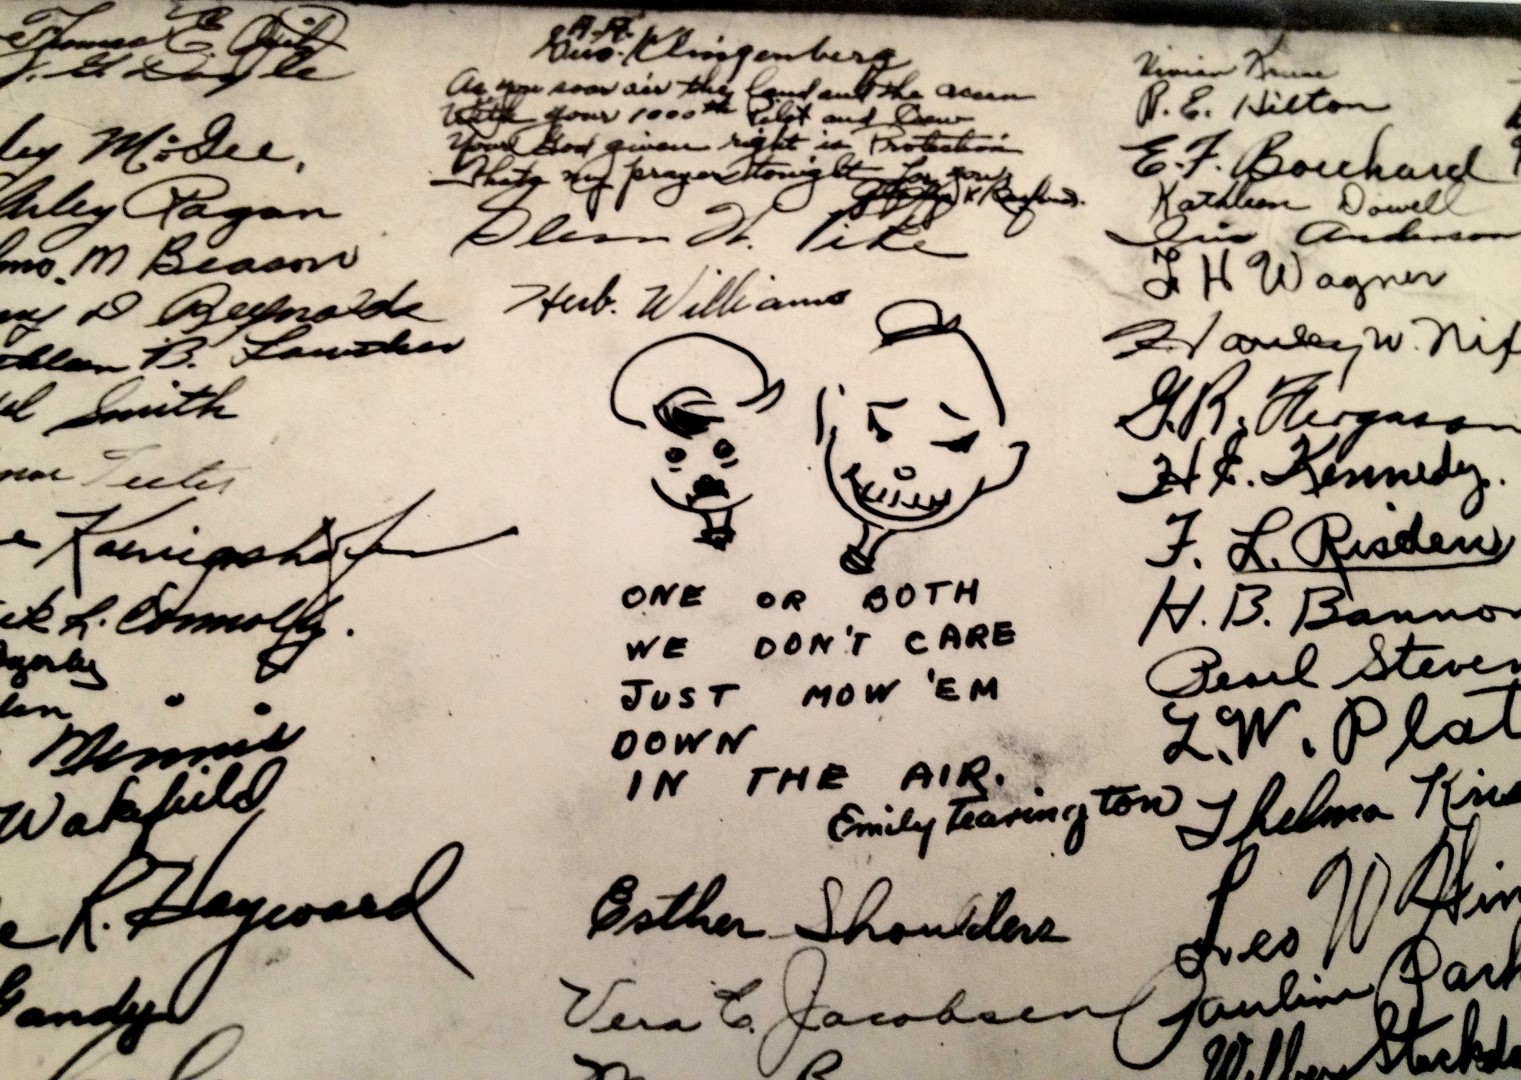 Thomas E.
J. G. Doyle
ley McGee,
Arley Pagan
M Beason
D Reynolds
thleen B.
Smith
Teeter
Koenigshofer
L. Connolly.
Minnie
Wakefield
R. Hayward
Gandy
A.A.
Geo. Klingenberg
As you soar air the land and the ocean
With your 1000th Pilot and Crew
Your God given right is Protection
Thats my prayer tonight for you
Glenn W. Pike
Herb. Williams
ONE OR BOTH
WE DON'T CARE
JUST MOW 'EM
DOWN
IN THE AIR.
Emily Tearington
Esther Shoulders
Vera C. Jacobsen
Vivian Kruse
R. E. Hilton
E. F. Bouchard
Kathleen Dowell
Iris Anderson
H Wagner
W. Nix
G. R. Ferguson
H E. Kennedy.
F. L. Risden
H. B. Bannon
Pearl Steven
L. W. Plat
Thelma Kris
Leo W Hin
Pauline Park
Stockda